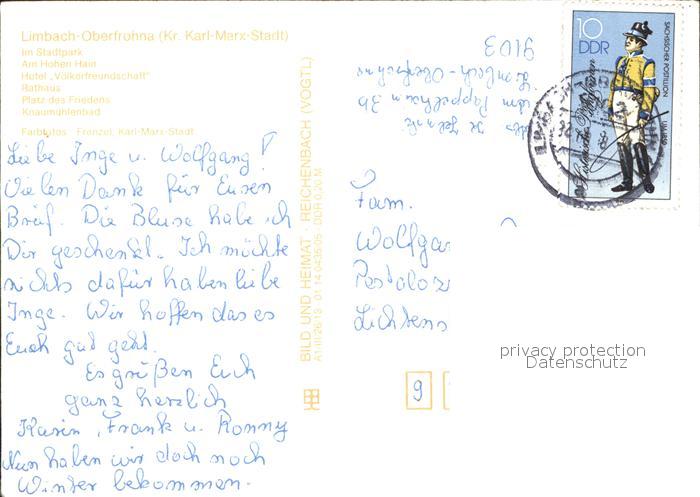 Limbach-Oberfrohna (Kr. Karl-Marx-Stadt)
Im Stadtpark
Am Hohen Hain
Hotel „Völkerfreundschaft"
Rathaus
Platz des Friedens
Knaumühlenbad
Farbfotos Frenzel, Karl-Marx-Stadt
Liebe Inge u. Wolfgang!
Vielen Dank für Euren
Brief. Die Bluse habe ich
Dir geschenkt. Ich möchte
nichts dafür haben liebe
Inge. Wir hoffen das es
Euch gut geht.
Es grüßen Euch
ganz herzlich
Karin, Frank u. Ronny
Nun haben wir doch noch
Winter bekommen.
BILD UND HEIMAT · REICHENBACH (VOGTL)
A1/III/26/13 01 14 0436/05 DDR 0,20 M
3b
Limbach-Oberfrohna
9103
10
DDR
SÄCHSISCHER POSTILLION
UM 1850
Historische Postuniformen
Fam.
Wolfga
Pestaloz
Lichtens
9
privacy protection
Datenschutz